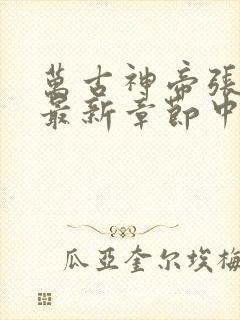 萬古神帝張
最新章節中
瓜亞奎尔埃梅